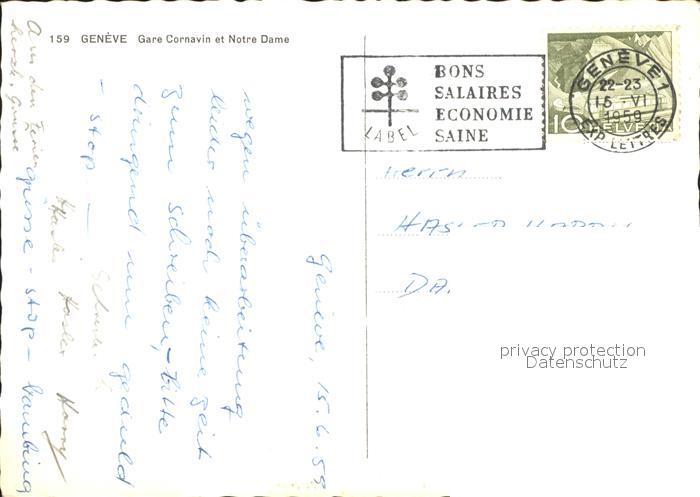 159 GENÈVE Gare Cornavin et Notre Dame
LABEL
BONS
SALAIRES
ECONOMIE
SAINE
GENÈVE 1
22-23
15 -VI
1959
EXP. LETTRES
10 HELVETIA
Herrn
DA.
privacy protection
Datenschutz
Genève, 15.6.59
wegen überarbeitung
leider noch keine zeit
zum schreiben, – bitte
dringend um geduld
– stop –
grüsse – stop –
A in den Ferien
herzl. Grüsse
Hasler Harry